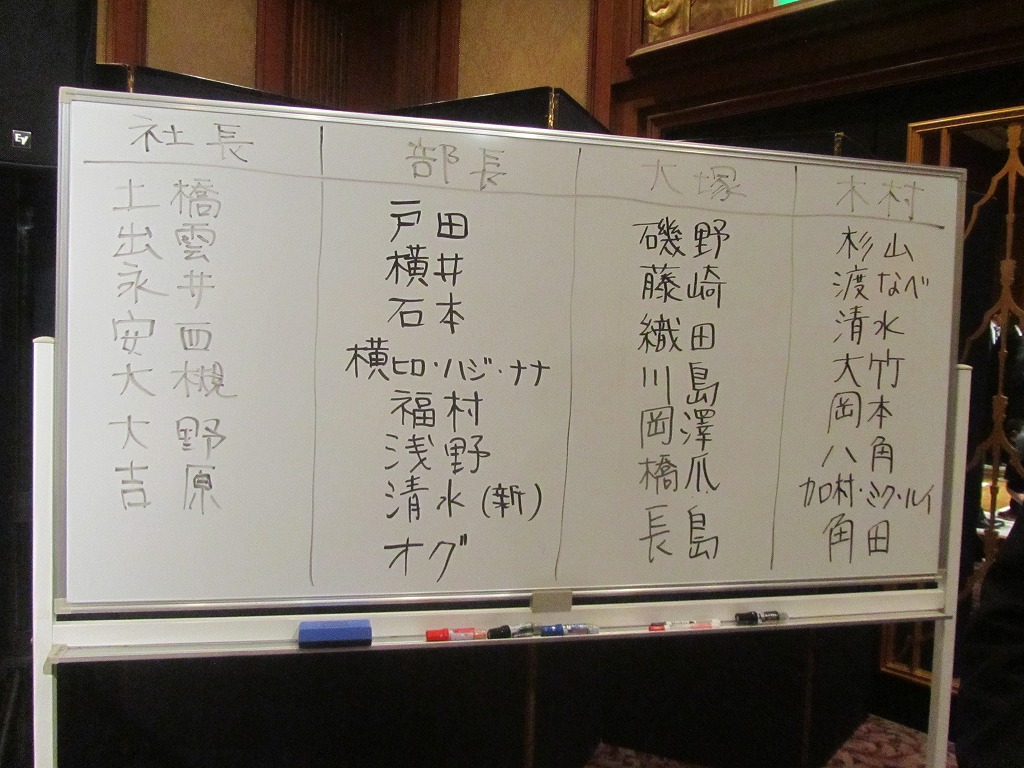 社長
土橋
出雲
永井
安西
大槻
大野
吉原
部長
戸田
横井
石本
横ヒロ・ハジ・ナナ
福村
浅野
清水(新)
オグ
大塚
磯野
藤崎
織田
川島
岡澤
橋爪
長島
木村
杉山
渡なべ
清水
大竹
岡本
八角
加村・ミク・ルイ
角田
EV